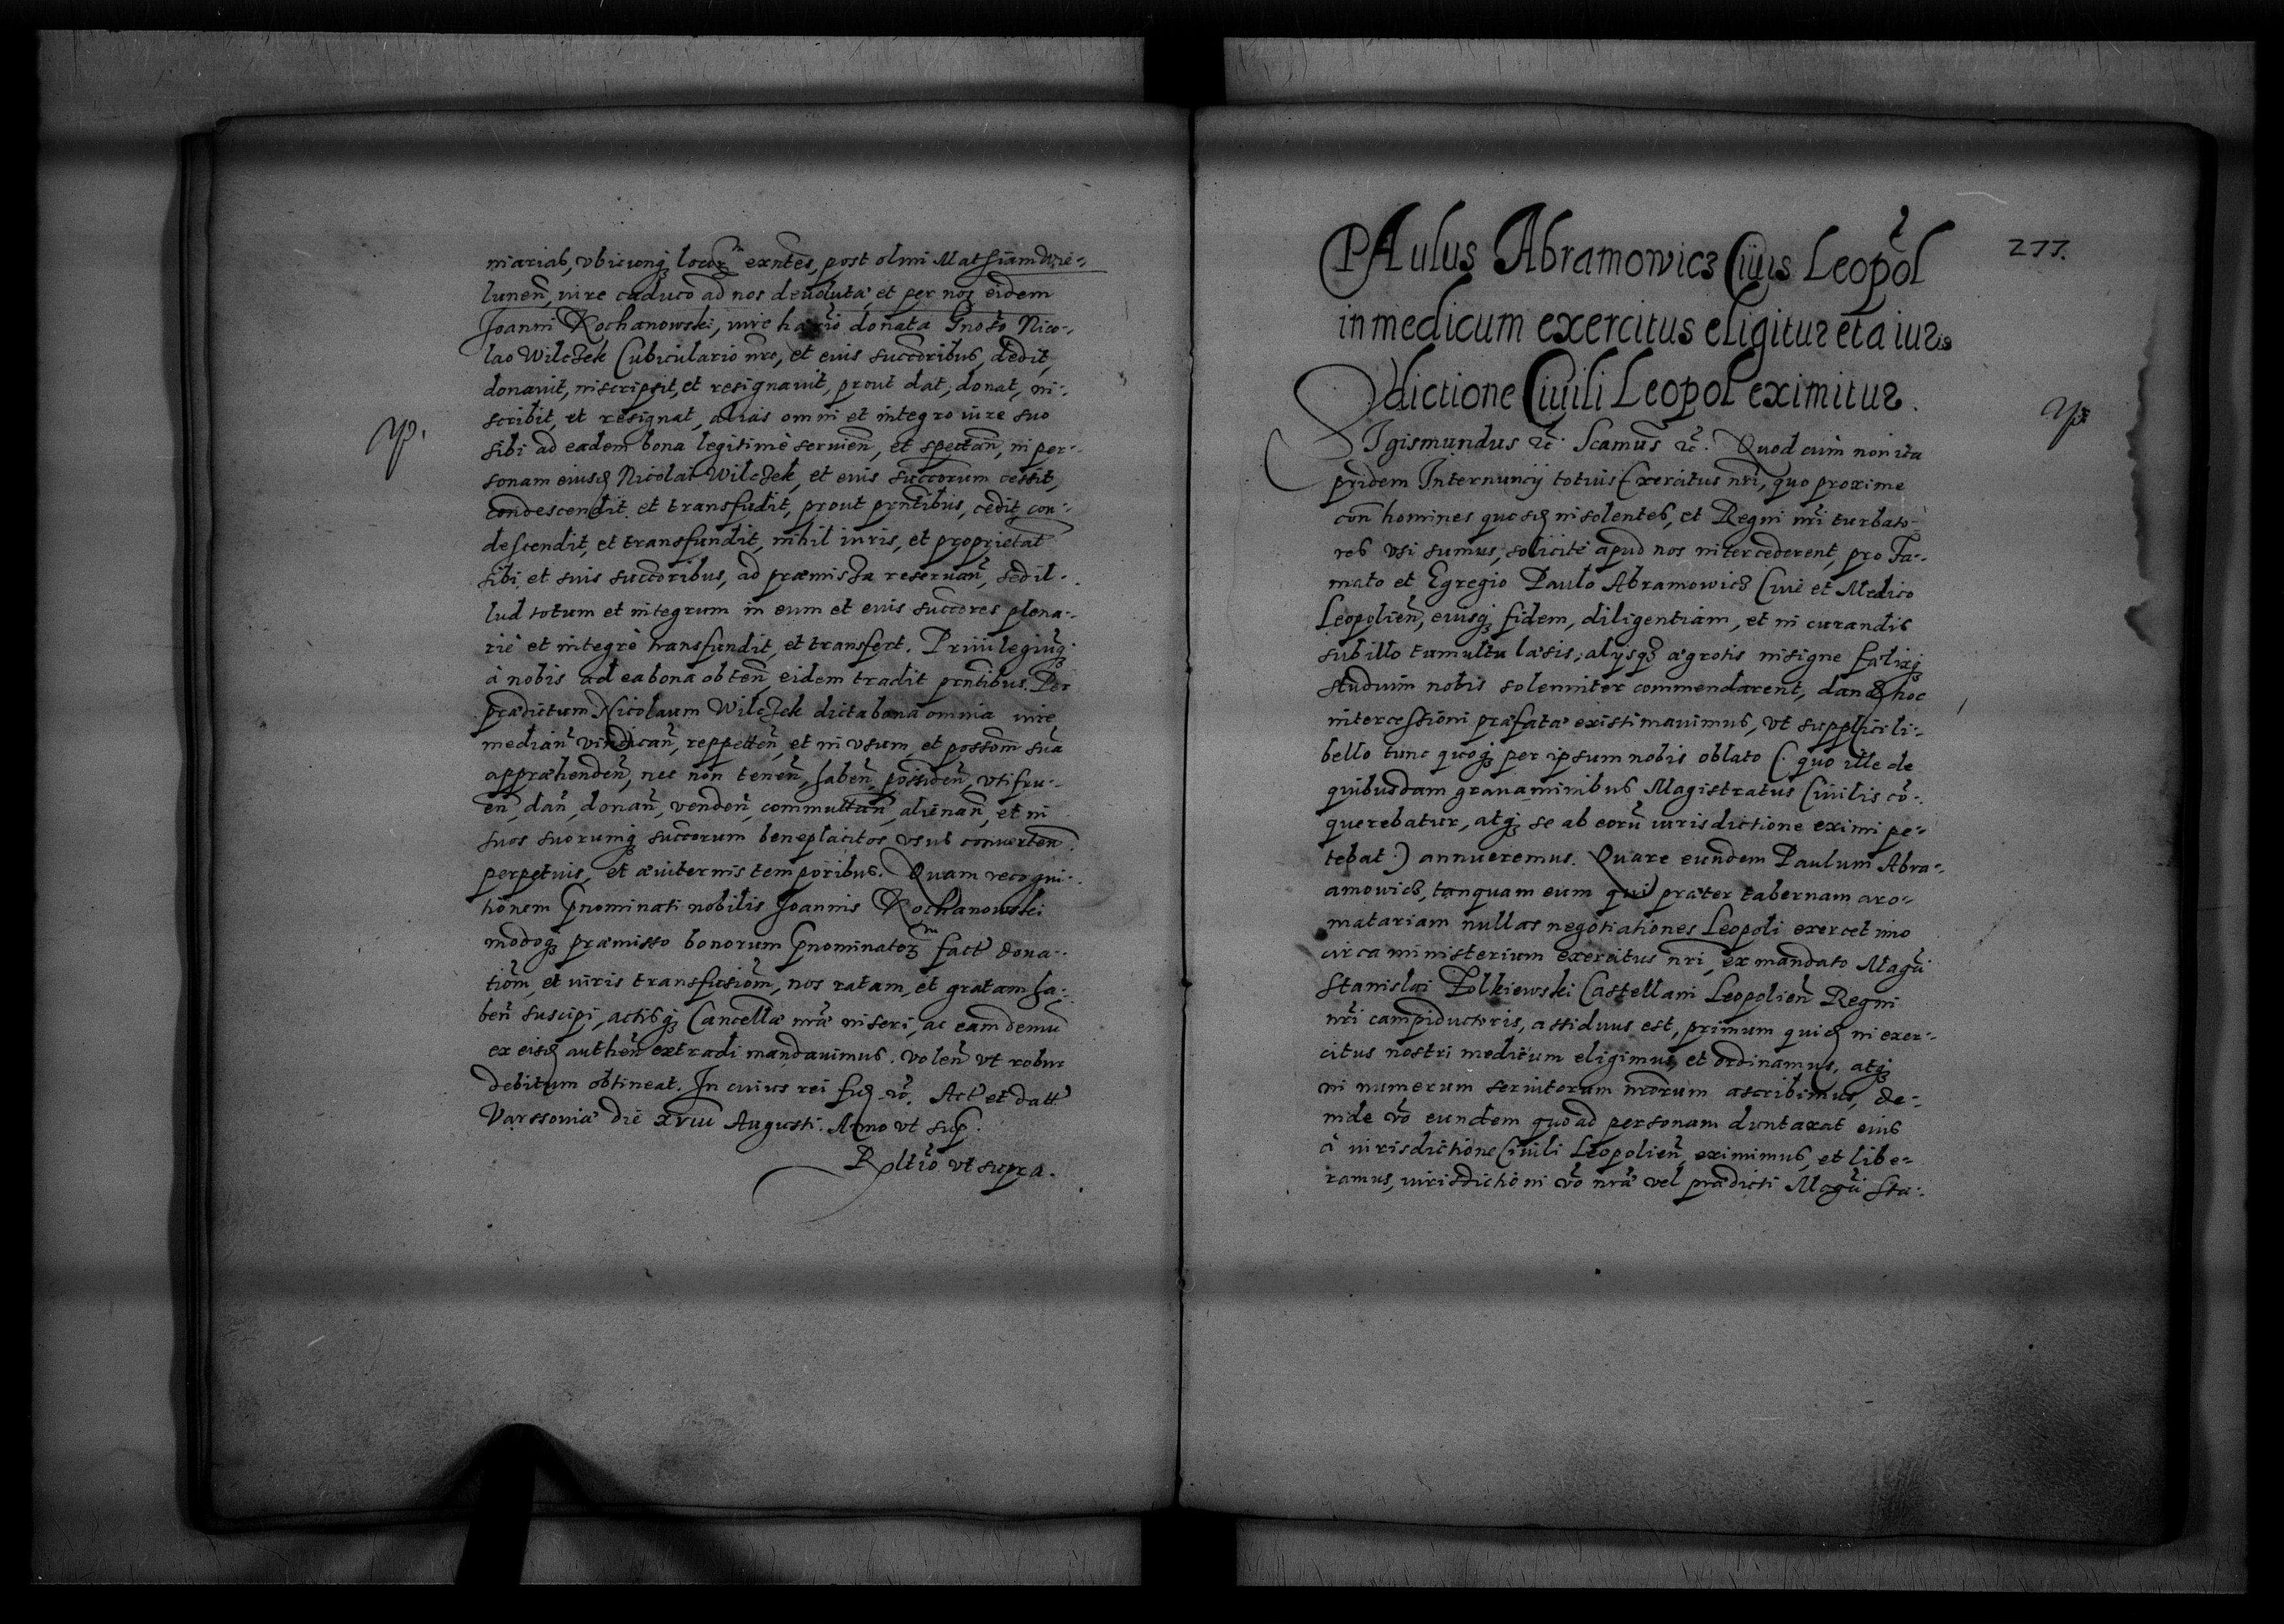 niarias, vbicunq; locor exntes, post olim Mathiam Wie-
lunen, iure caduco ad nos deuoluta, et per nos eidem
Joanni Kochanowski, iure donata Gnoso Nico-
lao Wilczek Cubiculario nro, et eius succoribus, dedit,
donauit, inscripsit, et resignauit, prout dat, donat, in-
scribit, et resignat, alias omni et integro iure suo
sibi ad eadem bona legitimè seruien, et spectan, in per-
sonam eiusd Nicolai Wilczek, et eius succorum cessit,
condescendit et transfudit, prout prntibus, cedit, con-
descendit, et transfundit, nihil iuris, et proprietat
sibi et suis succoribus, ad præmissa reseruan, sed il-
lud totum et integrum in eum et eius succores plena-
riè et integrè transfundit, et transfert. Priuilegiuq;
à nobis ad ea bona obten, eidem tradit prntibus. Per
prædictum Nicolaum Wilczek dicta bona omnia iure
median vindican, reppetten, et in vsum, et possom sua
appræhenden, nec non tenen, haben, possiden, vtifru-
en, dan, donan, venden, commutan, alienan, et in
suos suorumq; succorum beneplacitos vsus conuerten.
perpetuis, et æuiternis temporibus. Quam recogni-
tionem pnominati nobilis Joannis Kochanowski
modoq; præmisso bonorum pnominator fact dona-
tiom, et iuris transfusiom, nos ratam, et gratam ha-
ben suscipi, actisq; Cancellæ nræ inseri, ac eam demu
ex eisd authen extradi mandauimus. Volen vt robur
debitum obtineat. In cuius rei fid rc. Act et datt
Varssouiæ die xviii Augusti. Anno vt sup.
Rltio vt supra.
277.
PAulus Abramowicz Ciuis Leopol
in medicum exercitus eligitur et a iuris
dictione Ciuili Leopol eximitur.
SIgismundus rc. Scamus rc. Quod cum non ita
pridem Internuncij totius Exercitus nri, quo proxime
con homines quosd insolentes, et Regni nri turbato-
res vsi sumus, solicitè apud nos intercederent, pro Fa-
mato et Egregio Paulo Abramowicz Ciue et Medico
Leopolien, eiusq; fidem, diligentiam, et in curandis
sub illo tumultu læsis, alijsq; ægrotis insigne fælixq;
studium nobis solenniter commendarent, dand hoc
intercessioni præfatæ existimauimus, vt supplici li-
bello tunc quoq; per ipsum nobis oblato (. quo ille de
quibusdam grauaminibus Magistratus Ciuilis co-
querebatur, atq; se ab eoru iurisdictione eximi pe-
tebat .) annueremus. Quare eundem Paulum Abra-
amowicz, tanquam eum qui præter tabernam aro-
matariam nullas negotiationes Leopoli exercet imo
circa ministerium exercitus nri, ex mandato Magci
Stanislai Zolkiewski Castellani Leopolien Regni
nri campiductoris, assiduus est, primum quid in exer-
citus nostri medicum eligimus, et ordinamus, atq;
in numerum seruitorum nrorum ascribimus, de-
inde vo eundem quo ad personam duntaxat eius
à iurisdictione Ciuili Leopolien, eximimus, et libe-
ramus, iurisdictioni vo nræ vel prædicti Magci Sta-